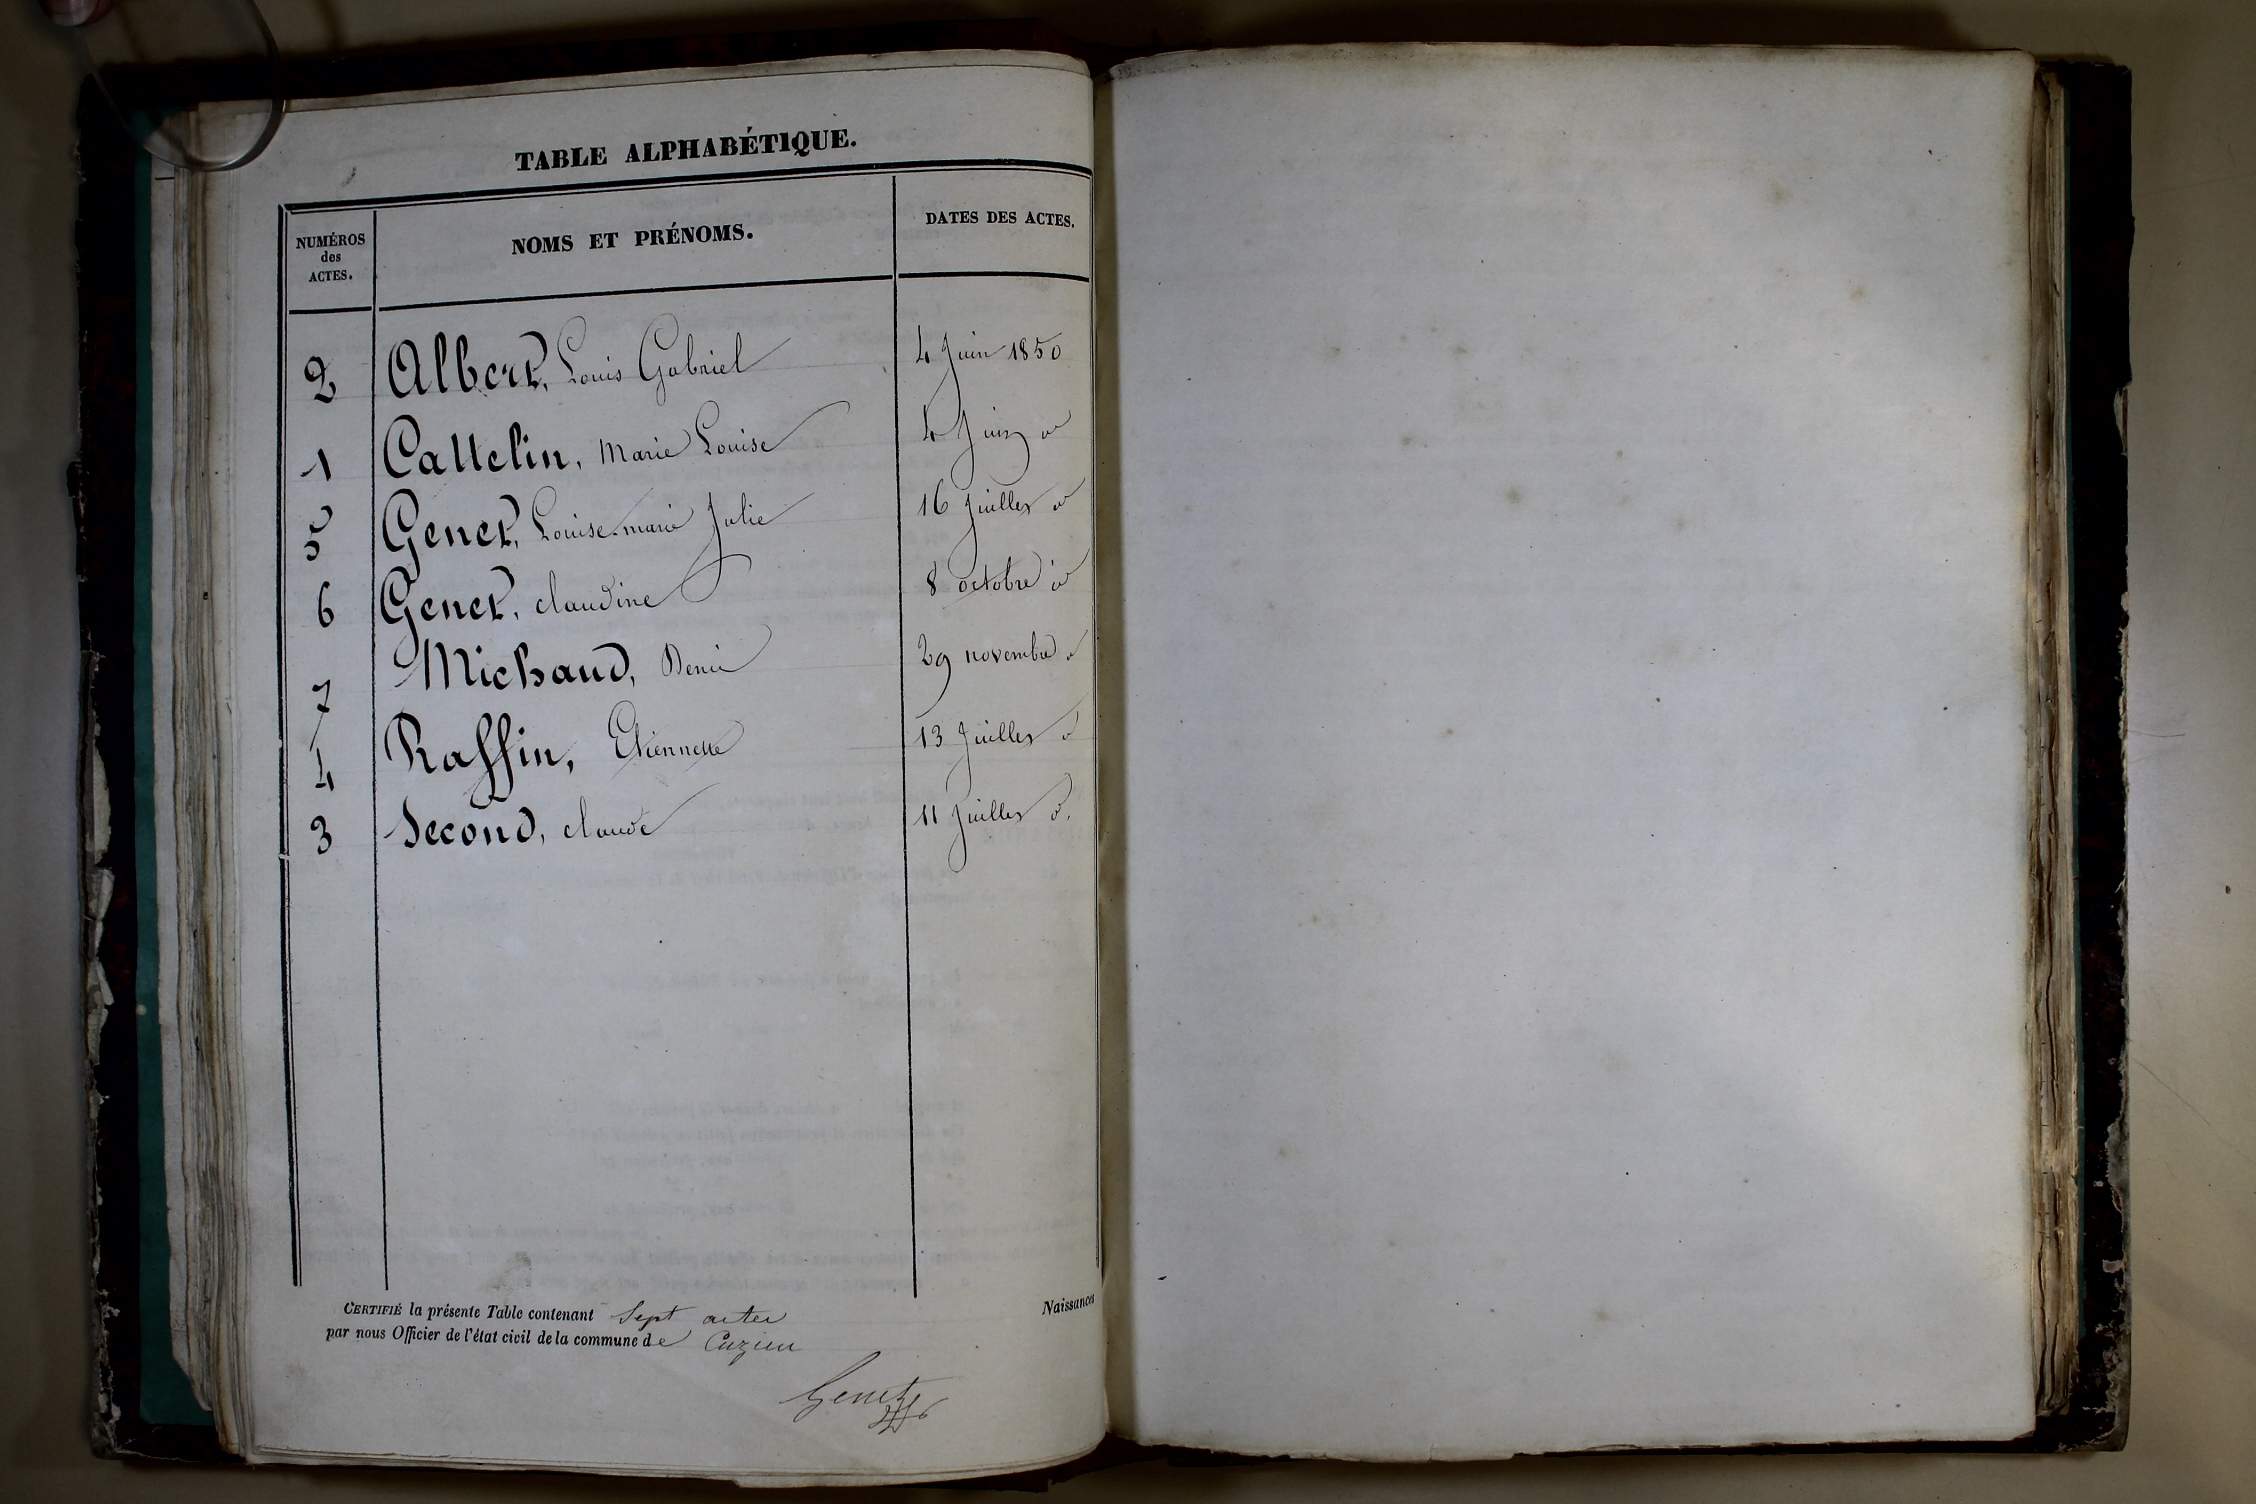 TABLE ALPHABÉTIQUE.
NUMÉROS des ACTES. NOMS ET PRÉNOMS. DATES DES ACTES.
2 Albert, Louis Gabriel 4 Juin 1850
1 Cattelin, Marie Louise 4 Juin d°
5 Genet, Louise marie Julie 16 Juillet d°
6 Genet, claudine 8 octobre d°
7 Michaud, Denis 29 novembre d°
4 Raffin, Etiennette 13 Juillet d°
3 Second, claude 11 Juillet d°.
CERTIFIÉ la présente Table contenant Sept actes
Naissances
par nous Officier de l'état civil de la commune de Cuzieu
Genet